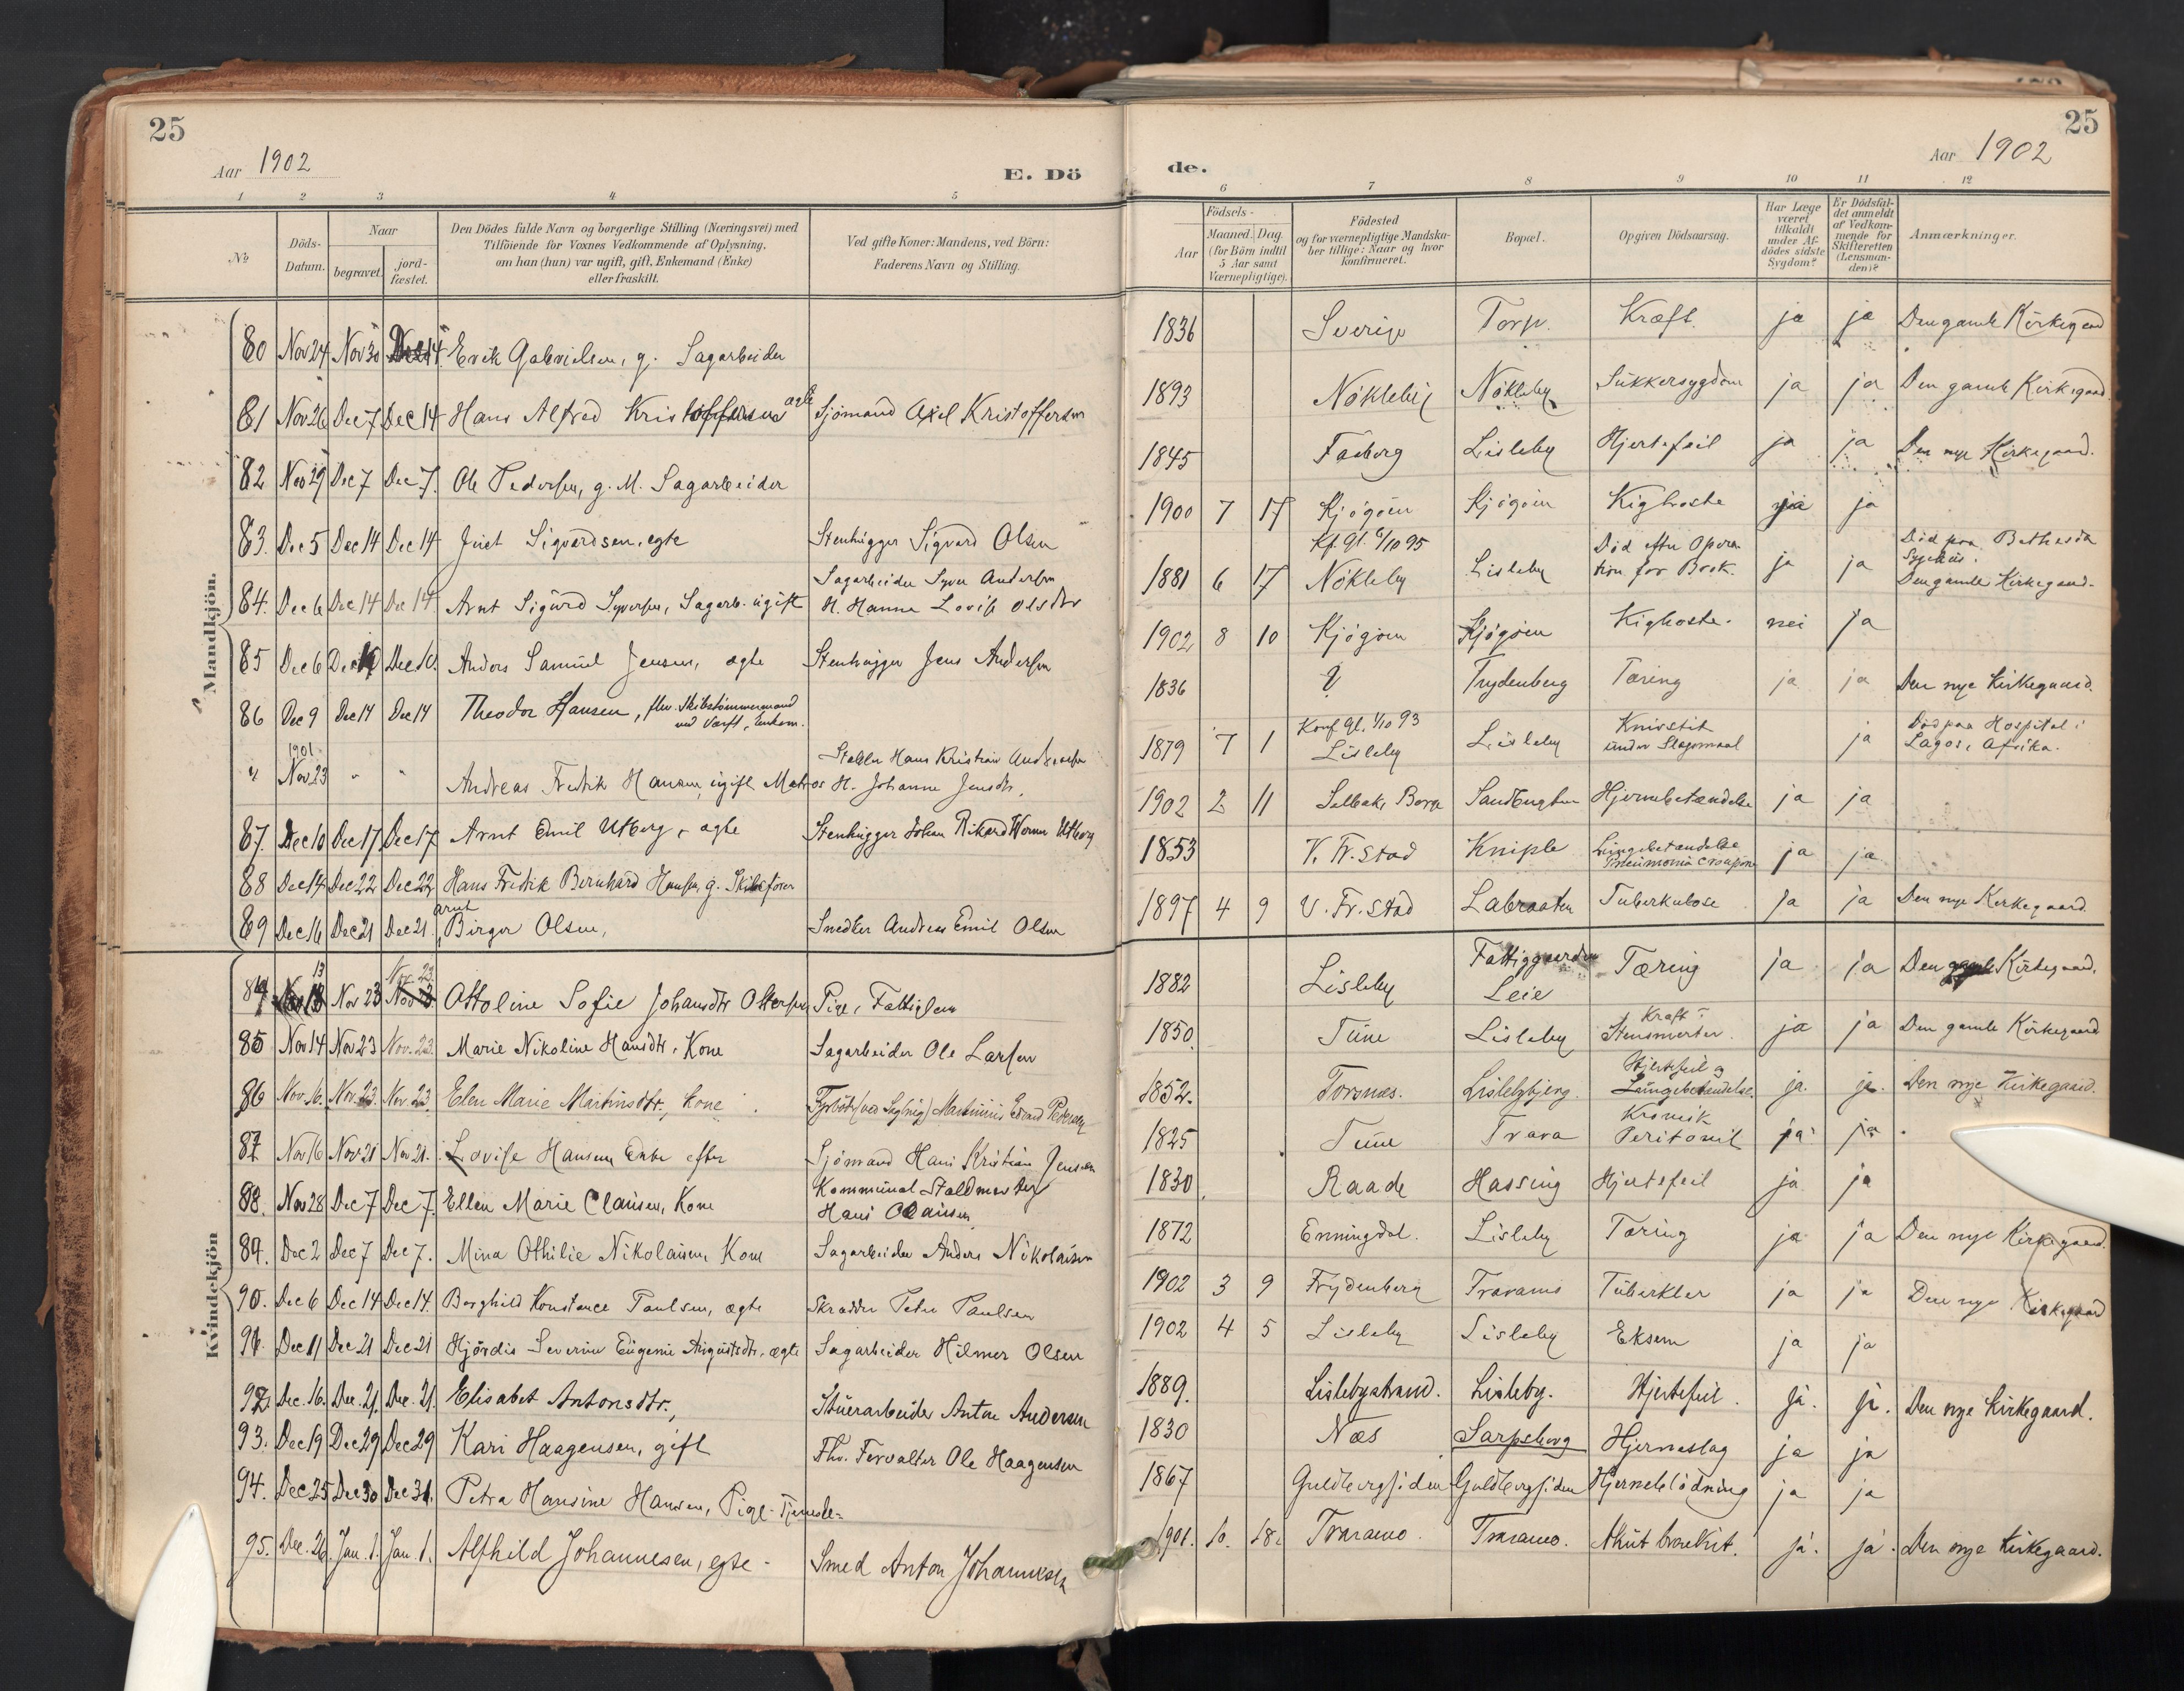 25
Aar 1902
E. Dö
de.
Aar 1902
25
1 2 3 4 5 6 7 8 9 10 11 12
No
Döds-Datum.
Naar
begravet.
jord-fæstet.
Den Dödes fulde Navn og borgerlige Stilling (Næringsvei) med
Tilföiende for Voxnes Vedkommende af Oplysning,
om han (hun) var ugift, gift, Enkemand (Enke)
eller fraskilt.
Ved gifte Koner: Mandens, ved Börn:
Faderens Navn og Stilling.
Födsels-
Aar
Maaned. Dag.
(for Börn indtil
5 Aar samt
Værnepligtige).
Födested
og for værnepligtige Mandska-
ber tillige: Naar og hvor
konfirmeret.
Bopæl.
Opgiven Dödsaarsag.
Har Læge
været
tilkaldt
under Af-
dödes sidste
Sygdom?
Er Dödsfal-
det anmeldt
af Vedkom-
mende for
Skifteretten
(Lensman-
den)?
Anmærkninger.
Mandkjön.
80 Nov 24 Nov 30 Dec 14 Erik Gabrielsen, g. Sagarbeider 1836 Sverige Torp. Kræft. ja ja Den gamle Kirkegaard
81 Nov 26 Dec 7 Dec 14 Hans Alfred Kristoffersen ægte Sjömand Axel Kristoffersen 1893 Nökleby Nökleby Sukkersygdom ja ja Den gamle Kirkegaard.
82 Nov 29 Dec 7 Dec 7. Ole Pedersen, g. M. Sagarbeider 1845 Faaberg Lisleby Hjertefeil ja ja Den nye Kirkegaard.
83. Dec 5 Dec 14 Dec 14 Juet Sigvardsen, egte Stenhugger Sigvard Olsen 1900 7 17 Kjögöien Kjögöien Kighoste ja ja
84. Dec 6 Dec 14 Dec 14 Arnt Sigurd Syversen, Sagarb. ugift Sagarbeider Syver Andersen
H. Hanna Lovise Olsdtr 1881 6 17 Kf. Gl. 6/10 95
Nökleby Lisleby Död efter Opera-
tion for Brok. ja ja Död paa Bethesda
Sygehus.
Den gamle Kirkegaard.
85 Dec 6 Dec 10 Dec 10. Anders Samuel Jensen, ægte Stenhugger Jens Andersen 1902 8 10 Kjögöien Kjögöien Kighoste. nei ja
86 Dec 9 Dec 14 Dec 14 Theodor Hansen, fhv. Skibstömmermand
ved Værft, Enkem. 1836 Trydenberg Tæring ja ja Den nye Kirkegaard.
" 1901
Nov 23 " " Andreas Fredrik Hansen, ugift Matros Hans Kristian Andersen
H. Johanne Jensdtr. 1879 7 1 Konf. Gl. 1/10 93
Lisleby Lisleby Knivstik
under Slagsmaal ja Död paa Hospital i
Lagos, Afrika.
87. Dec 10 Dec 17 Dec 17 Arnt Emil Utberg, ægte Stenhugger Johan Rikard Werner Utberg 1902 2 11 Selbak, Borge Sandbugten Hjernebetændelse ja ja
88 Dec 14 Dec 22 Dec 22 Hans Fredrik Bernhard Hansen, g. Skibsförer 1853 V. Fr.stad Kniple Lungebetændelse
Pneumonia croupøs ja ja
89 Dec 16 Dec 21 Dec 21 Arnt
Birger Olsen, Snedker Andreas Emil Olsen 1897 4 9 V. Fr.stad Labraaten Tuberkulose ja ja Den nye Kirkegaard.
Kvindekjön
84 Nov 13 Nov 23 Nov. 23 Ottoline Sofie Johansdtr Ottersen Pige, Fattiglem 1882 Lisleby Fattiggaarden
Leie Tæring ja ja Den gamle Kirkegaard.
85 Nov 14 Nov 23 Nov. 23. Marie Nikoline Hansdtr, Kone Sagarbeider Ole Larsen 1850. Tune Lisleby Kræft i
ja ja Den gamle Kirkegaard
86 Nov. 16. Nov. 23. Nov. 23. Elen Marie Martinsdtr., kone Martinius Edvard Pedersen 1852. Torsnæs. Lislebybjerg. Hjertefeil og
Lungebetændelse. ja. ja. Den nye Kirkegaard.
87. Nov 16 Nov 21 Nov 21. Lovise Hansen, Enke efter Sjömand Hans Kristian Jensen 1825 Tune Trara Kronisk
Peritonit ja ja
88. Nov 28 Dec 7 Dec 7. Ellen Marie Clausen, Kone Kommunal Staldmester
Hans Clausen 1830 Raade Hassing Hjertefeil ja ja
89. Dec 2 Dec 7 Dec 7. Mina Othilie Nikolaisen, Kone Sagarbeider Anders Nikolaisen 1872 Enningdal. Lisleby Tæring ja ja Den nye Kirkegaard.
90. Dec 6 Dec 14 Dec 14. Borghild Konstance Paulsen, ægte Skrædder Peter Paulsen 1902 3 9 Frydenberg Traramo Tuberkler ja ja Den nye Kirkegaard
91. Dec 11 Dec 21 Dec 21 Hjördis Severine Eugenie Augustsdtr, ægte Sagarbeider Hilmer Olsen 1902 4 5 Lisleby Lisleby Eksem ja ja
92. Dec. 16. Dec. 21. Dec. 21. Elisabet Antonsdtr., Stuerarbeider Anton Andersen 1889. Lislebystrand. Lisleby. Hjertefeil. ja. ja. Den nye Kirkegaard.
93. Dec 19 Dec 29 Dec 29 Kari Haagensen, gift Fhv. Forvalter Ole Haagensen 1830 Næs Sarpsborg Hjerneslag ja ja
94. Dec 25 Dec 30 Dec 31. Petra Hansine Hansen, Pige-Tjeneste- 1867 Guldbergsiden Guldbergsiden Hjerneblödning ja ja
95. Dec. 26. Jan. 1. Jan. 1. Alfhild Johannesen, egte - Smed Anton Johannesen 1901. 10. 18. Traramo. Traramo. Akut bronkit. ja. ja. Den nye Kirkegaard.